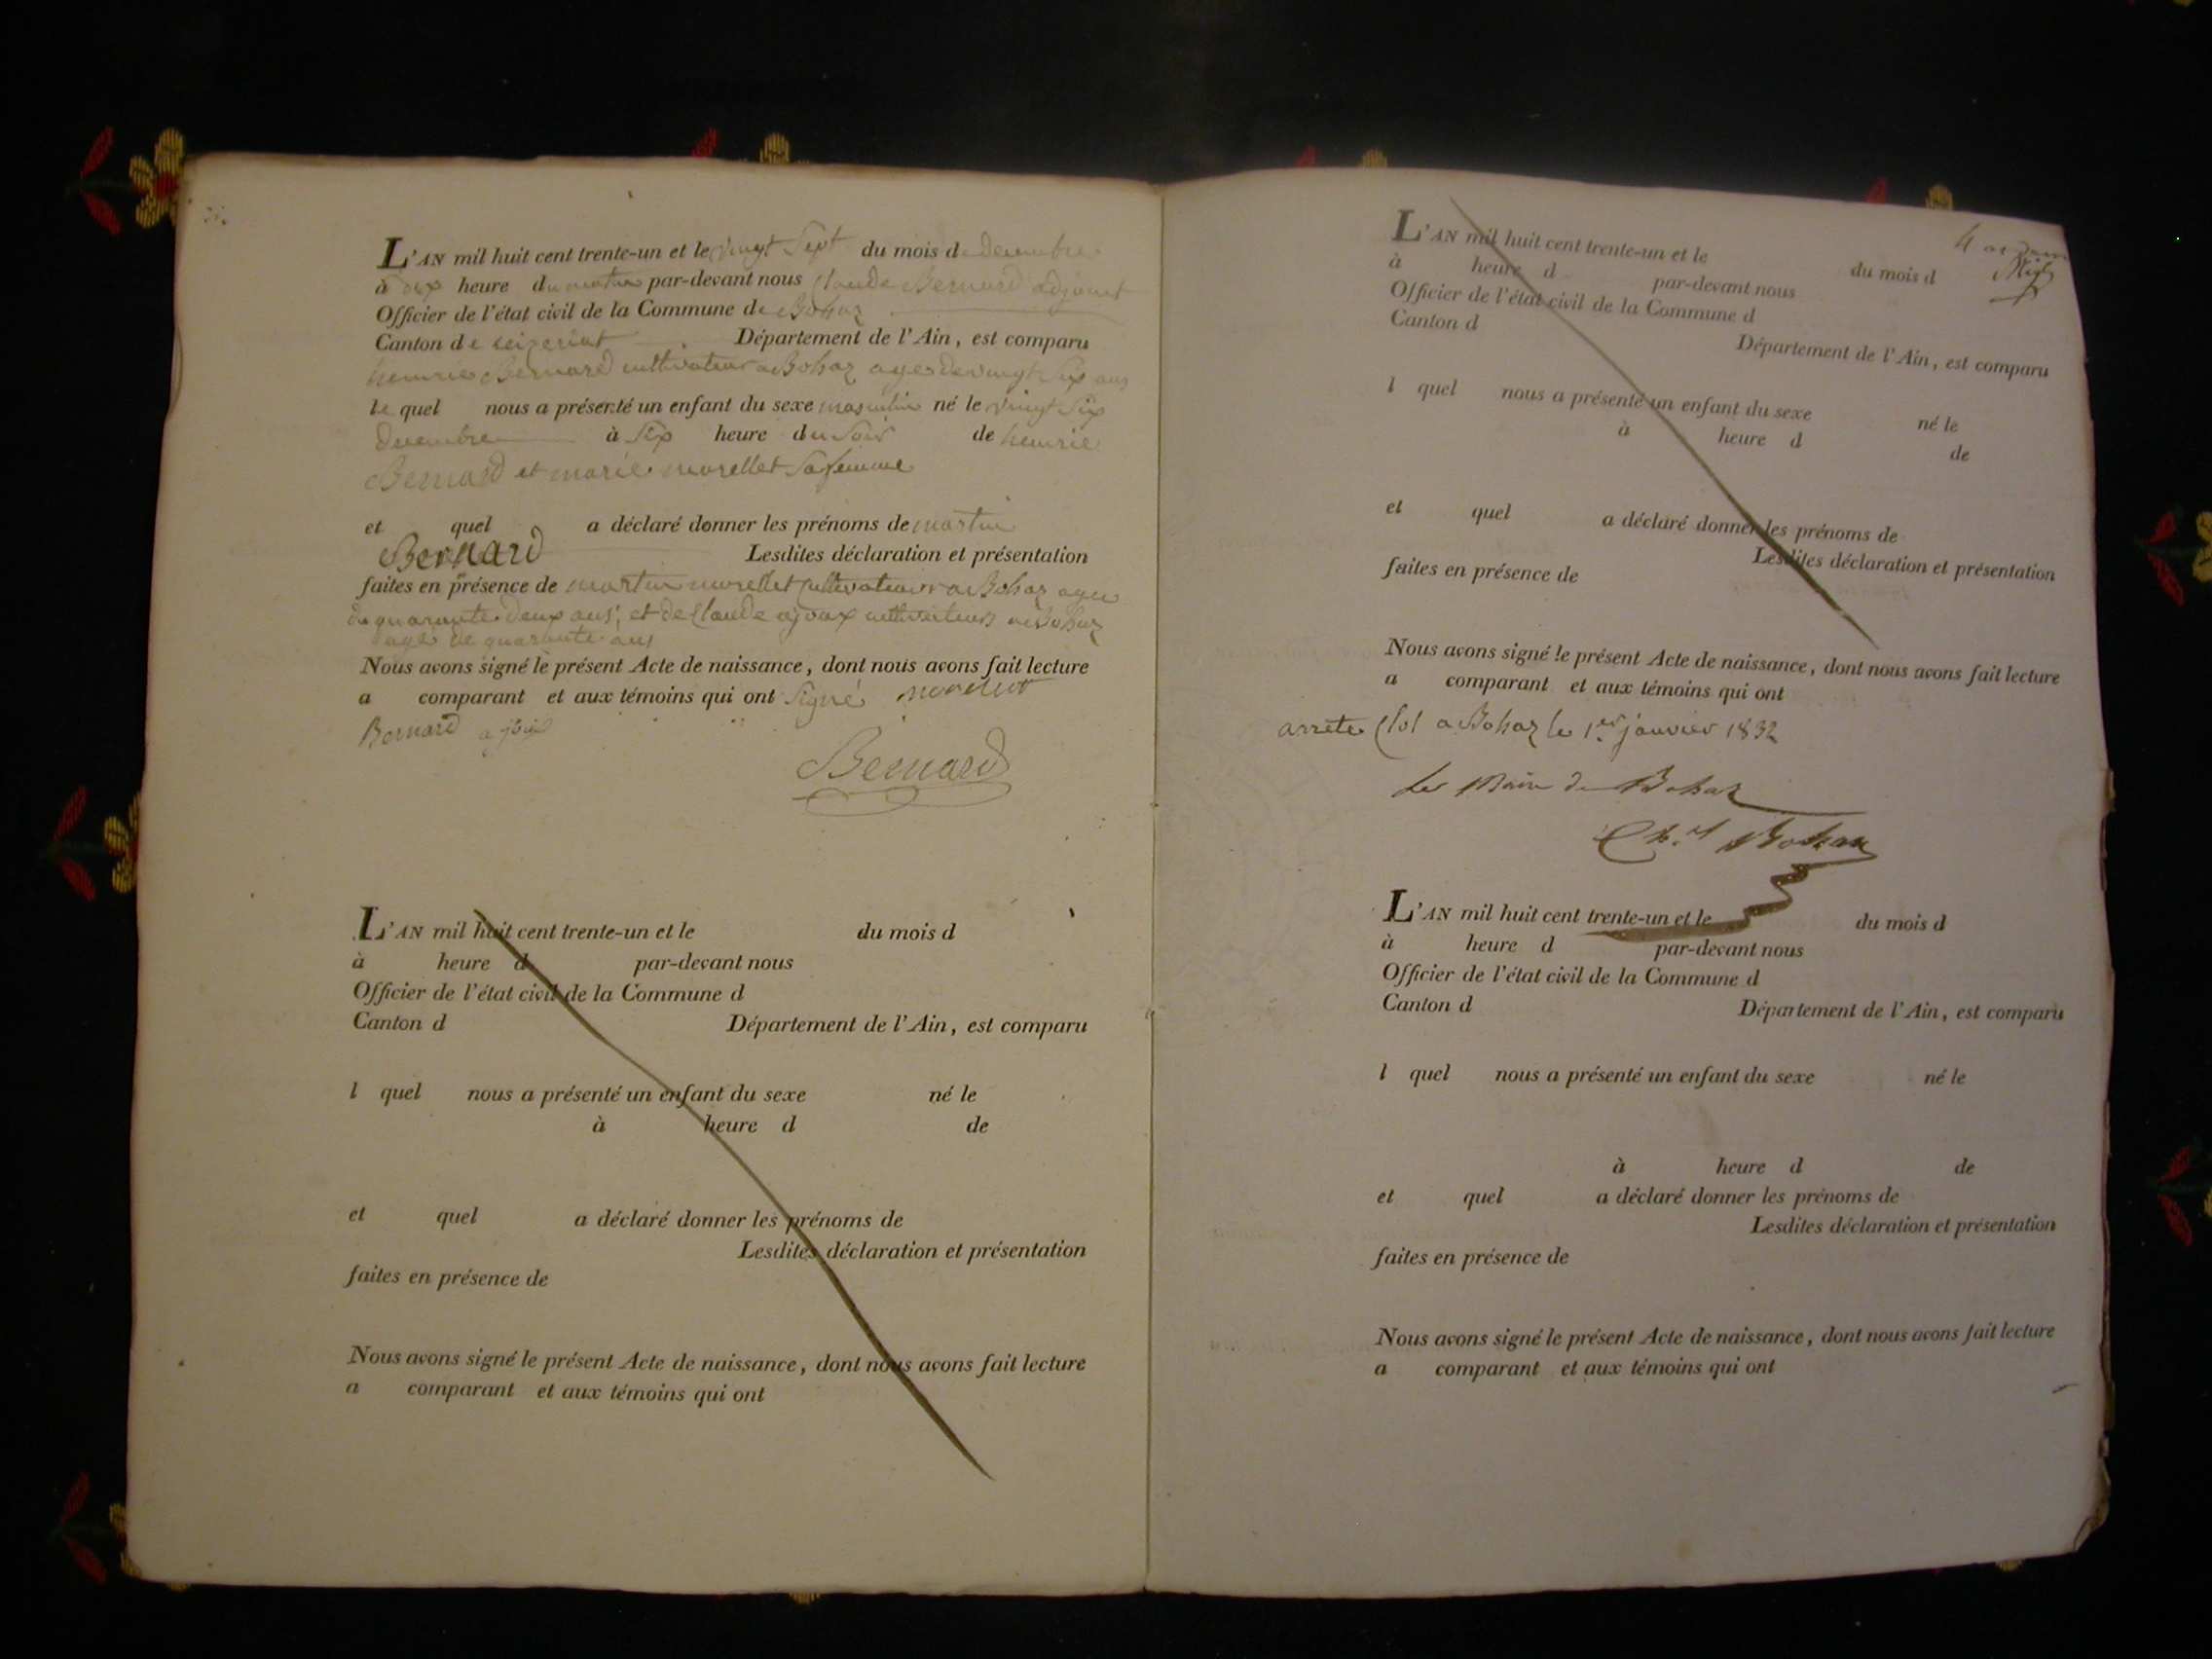 L'AN mil huit cent trente-un et le vingt Sept du mois de decembre
à dix heure du matin par-devant nous Claude Bernard adjoint
Officier de l'état civil de la Commune de Bohaz
Canton de ceizeriat Département de l'Ain, est comparu
henrie Bernard cultivateur a Bohaz agee de vingt Six ans
le quel nous a présenté un enfant du sexe masculin né le vingt Six
decembre à Six heure du Soir de henrie
Bernard et marie morellet Sa femme
et quel a déclaré donner les prénoms de martin
Bernard Lesdites déclaration et présentation
faites en présence de martin morellet Cultivateur a Bohaz agee
de quarante deux ans, et de Claude ajoux cultivateur a Bohaz
age de quarante ans
Nous avons signé le présent Acte de naissance, dont nous avons fait lecture
a comparant et aux témoins qui ont Signé morellet
Bernard ajoux
Bernard
L'AN mil huit cent trente-un et le du mois d
à heure d par-devant nous
Officier de l'état civil de la Commune d
Canton d Département de l'Ain, est comparu
l quel nous a présenté un enfant du sexe né le
à heure d de
et quel a déclaré donner les prénoms de
Lesdites déclaration et présentation
faites en présence de
Nous avons signé le présent Acte de naissance, dont nous avons fait lecture
a comparant et aux témoins qui ont
L'AN mil huit cent trente-un et le du mois d
à heure d par-devant nous
Officier de l'état civil de la Commune d
Canton d Département de l'Ain, est comparu
l quel nous a présenté un enfant du sexe né le
à heure d de
et quel a déclaré donner les prénoms de
Lesdites déclaration et présentation
faites en présence de
Nous avons signé le présent Acte de naissance, dont nous avons fait lecture
a comparant et aux témoins qui ont
arrete Clol a Bohaz le 1er janvier 1832
Le Maire de Bohaz
L'AN mil huit cent trente-un et le du mois d
à heure d par-devant nous
Officier de l'état civil de la Commune d
Canton d Département de l'Ain, est comparu
l quel nous a présenté un enfant du sexe né le
à heure d de
et quel a déclaré donner les prénoms de
Lesdites déclaration et présentation
faites en présence de
Nous avons signé le présent Acte de naissance, dont nous avons fait lecture
a comparant et aux témoins qui ont